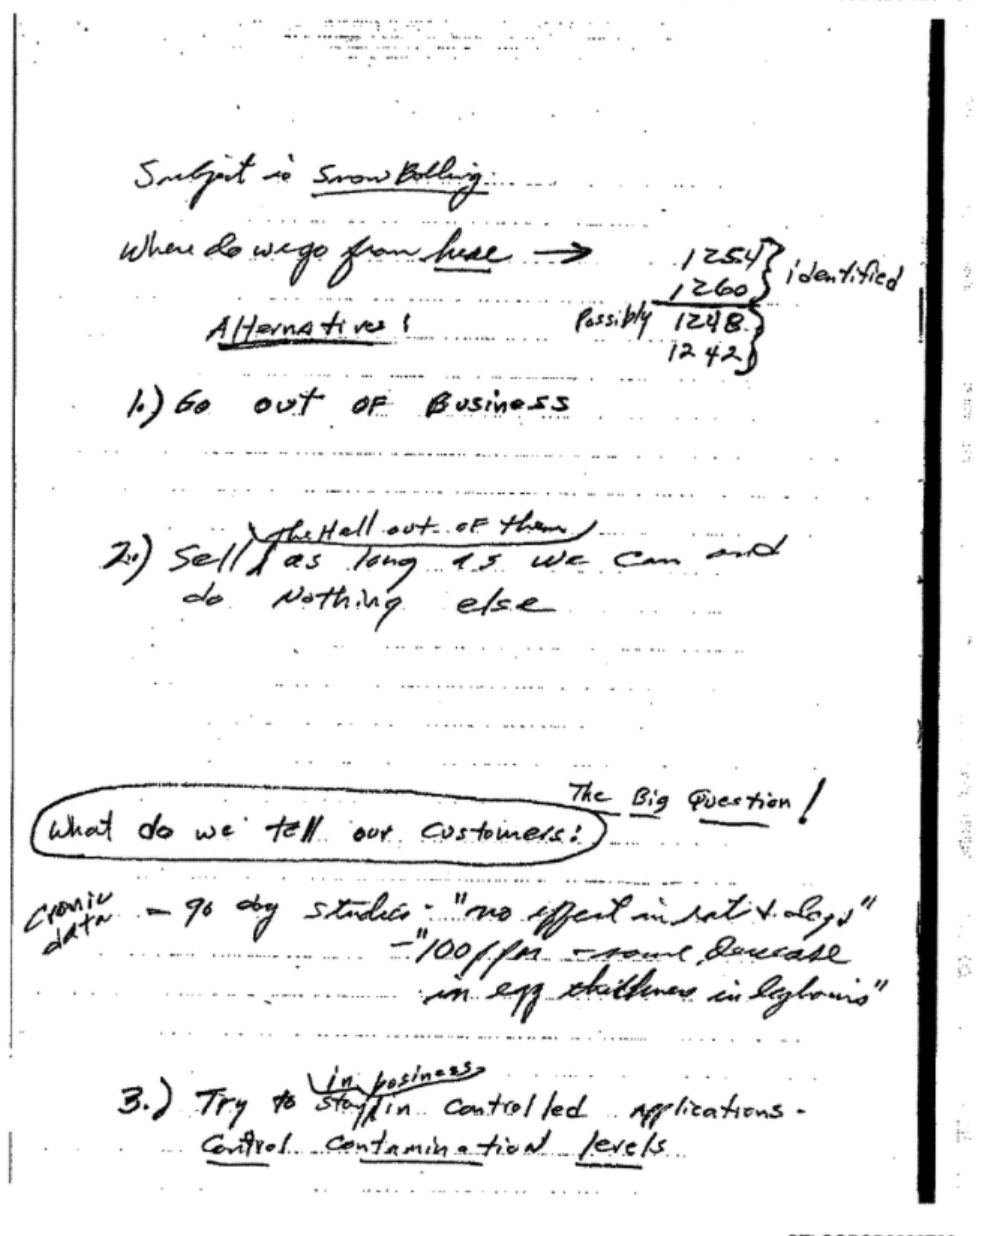 Subject is Snow Balling.
Where do we go from here → 1254 } identified
1260
Alternatives:
Possibly 1248 }
1242
1.) Go out of Business
the Hell out of them
2.) Sell as long as we can and
do Nothing else
The Big Question!
What do we tell our customers:
cronic data
- 90 day studies - "no effect in rat & dogs"
- "100 ppm - some decrease
in egg thickness in leghorns"
in business
3.) Try to stay in controlled applications -
control contamination levels